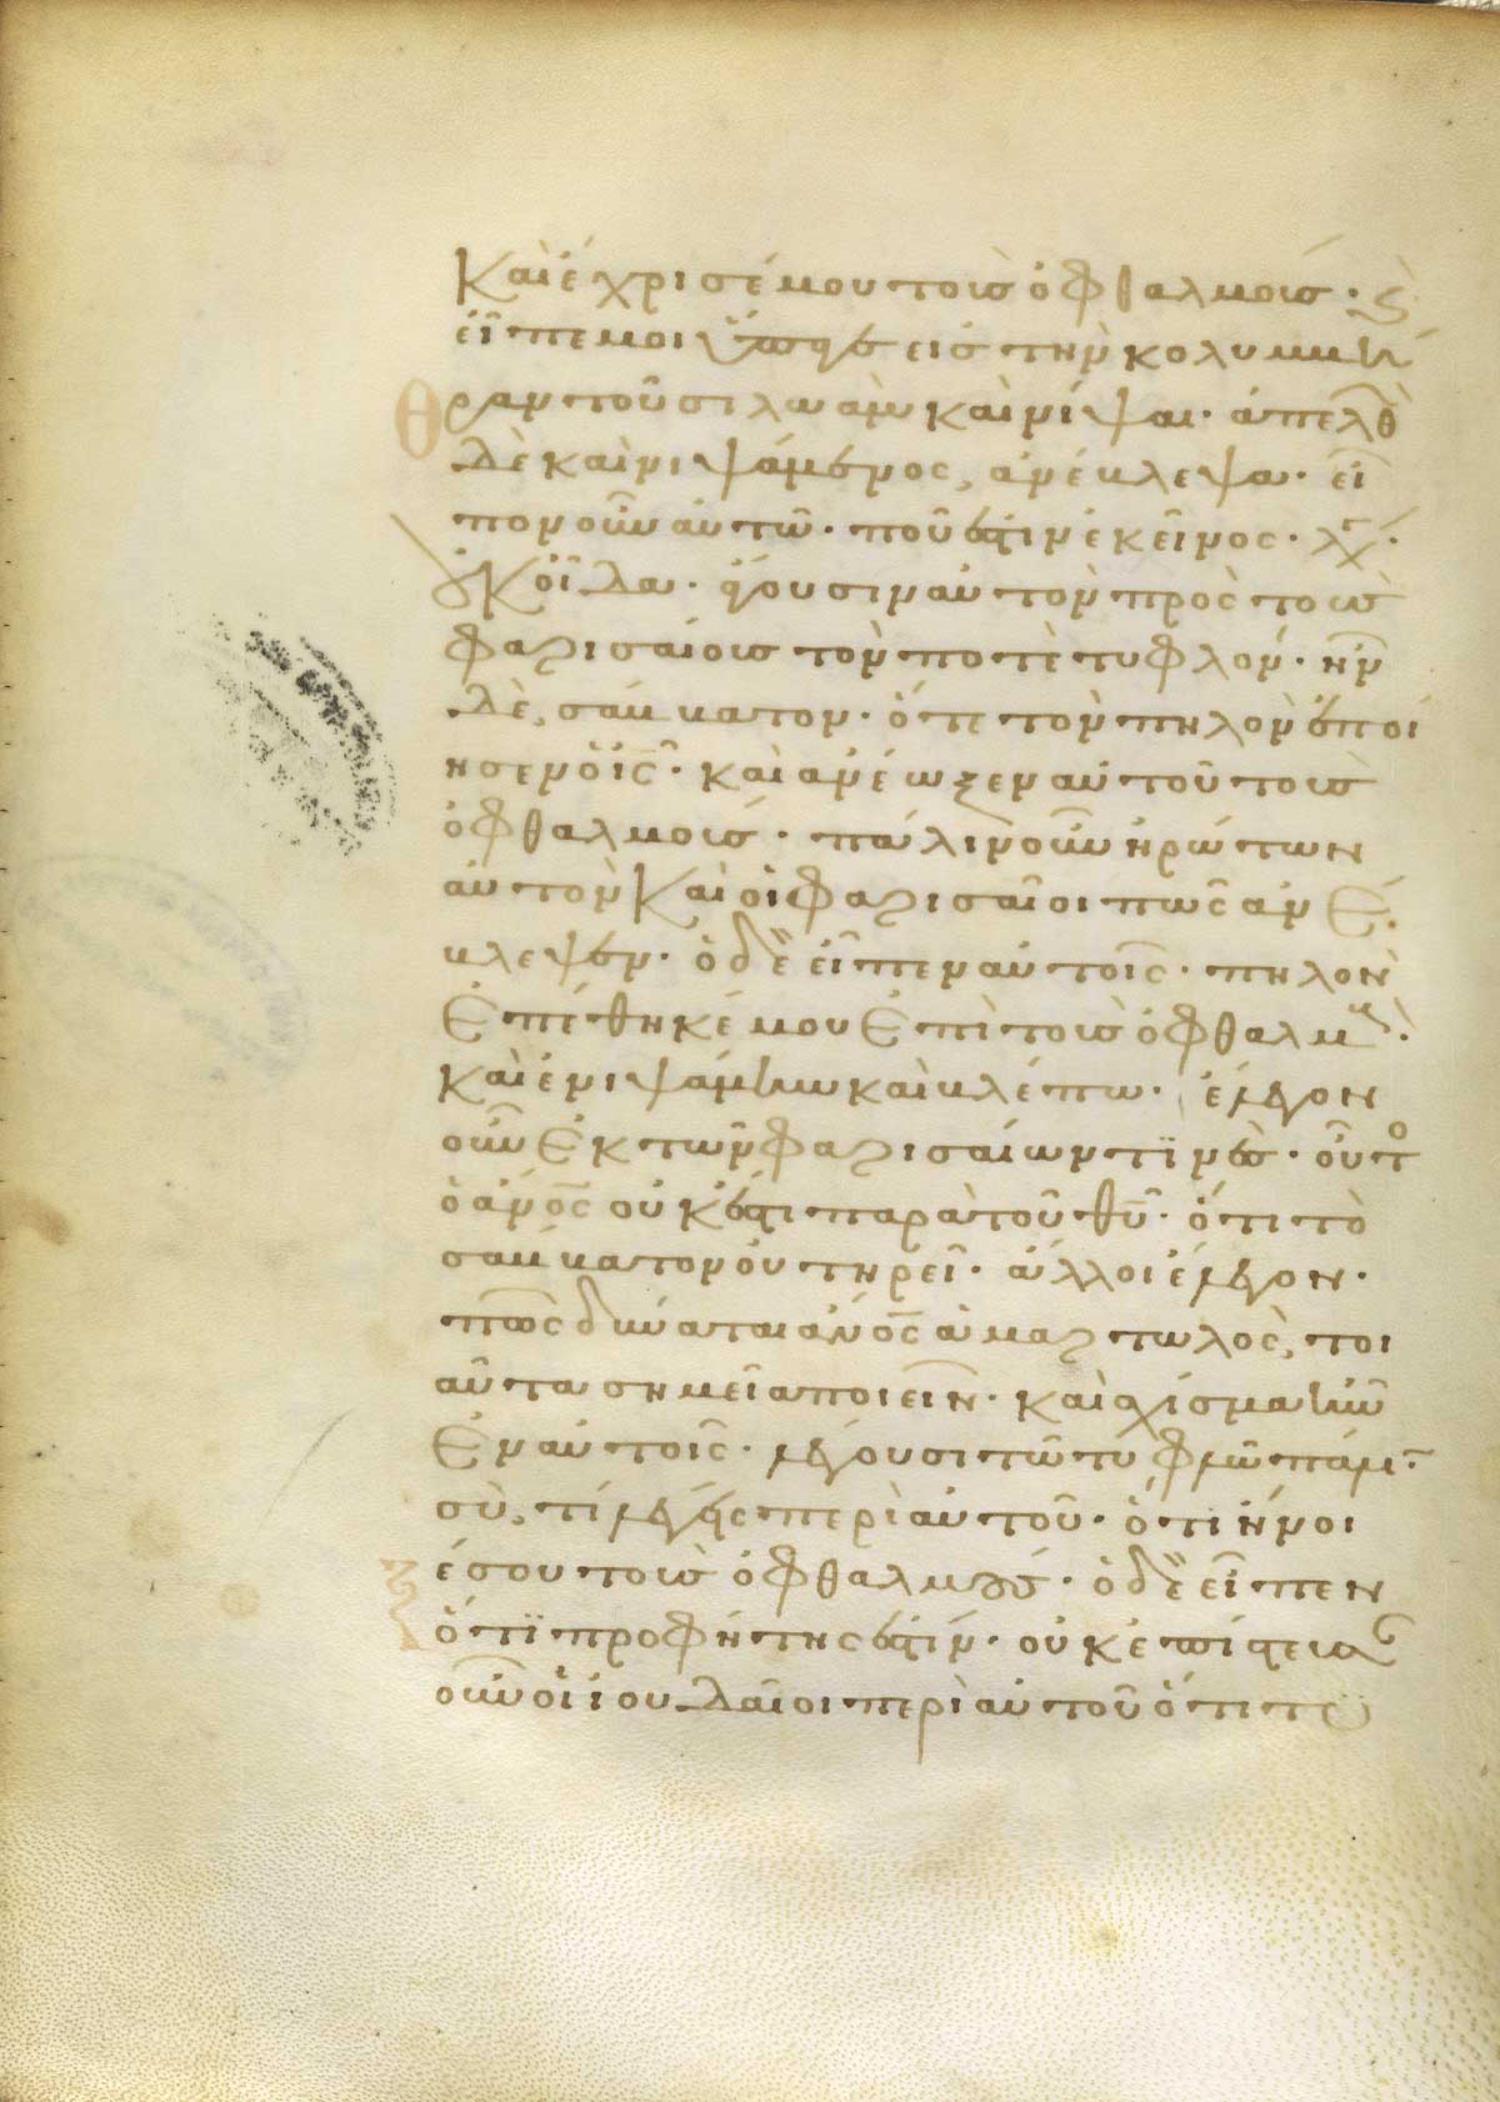 Καὶ ἔχρισέ μου τοὺς ὀφθαλμούς· ϗ
εἶπέ μοι ὕπαγε εἰς τὴν κολυμβή
θραν τοῦ σιλωὰμ καὶ νίψαι· ἀπελθ
δὲ καὶ νιψάμενος, ἀνέβλεψα· εἶ
πον οὖν αὐτῶ· ποῦ ἐστιν ἐκεῖνος· λέγ·
οὐκ οἶδα· ἄγουσιν αὐτὸν πρὸς τοὺς
φαρισαίους τὸν ποτὲ τυφλόν· ἦν
δὲ, σάββατον· ὅτε τὸν πηλὸν ἐποί
ησεν ὁ ις· καὶ ἀνέωξεν αὐτοῦ τοὺς
ὀφθαλμούς· πάλιν οὖν ἠρώτων
αὐτὸν Καὶ οἱ φαρισαῖοι πῶς ἀνέ
βλεψεν· ὁ δὲ εἶπεν αὐτοῖς· πηλὸν
ἐπέθηκέ μου ἐπὶ τοὺς ὀφθαλμ·
καὶ ἐνιψάμην καὶ βλέπω· ἔλεγον
οὖν ἐκ τῶν φαρισαίων τϊνὲς· οὗτο
ὁ ἄνος οὐκ ἔστι παρὰ τοῦ θυ· ὅτι τὸ
σάββατον οὐ τηρεῖ· ἄλλοι ἔλεγον·
πῶς δύναται ἄνος ἁμαρτωλὸς, τοι
αῦτα σημεῖα ποιεῖν· καὶ σχίσμα ἦν
ἐν αὐτοῖς· λέγουσι τῶ τυφλῶ πάλι·
σὺ, τί λέγεις περὶ αὐτοῦ· ὅτι ἤνοι
ξέ σου τοὺς ὀφθαλμούς· ὁ δὲ εἶπεν
ὅτϊ προφήτης ἐστίν· οὐκ ἐπίστευσ
οὖν οἱ ἰουδαῖοι περὶ αὐτοῦ ὅτι τυ